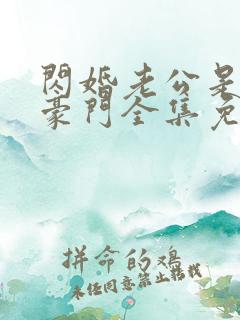 閃婚老公是
豪門全集免
拼命的鸡
未经同意禁止转载